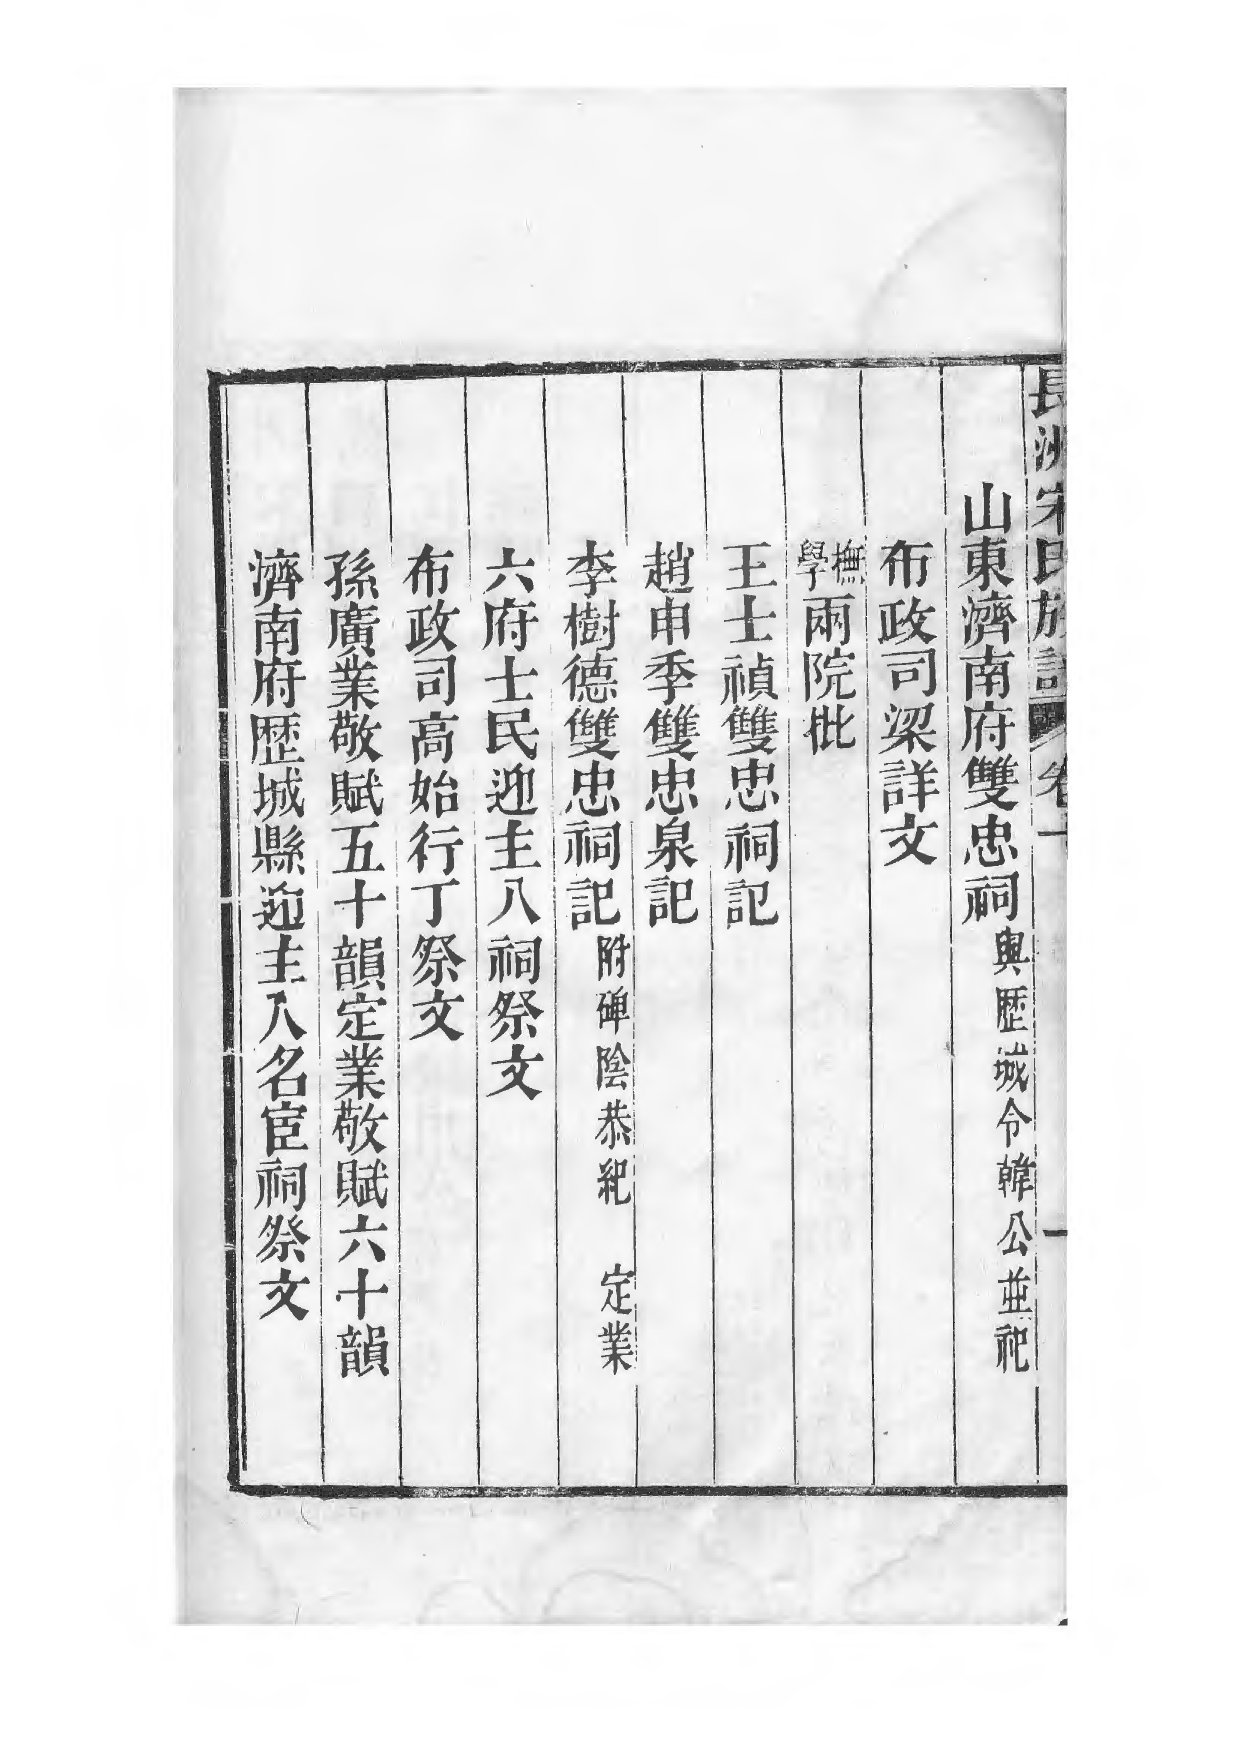 長洲宋氏族譜 卷十 一
山東濟南府雙忠祠 與歷城令韓公並祀
布政司梁詳文
撫學兩院批
王士禎雙忠祠記
趙申季雙忠泉記
李樹德雙忠祠記 附碑陰恭紀 定業
六府士民迎主入祠祭文
布政司高始行丁祭文
孫廣業敬賦五十韻定業敬賦六十韻
濟南府歷城縣迎主入名宦祠祭文